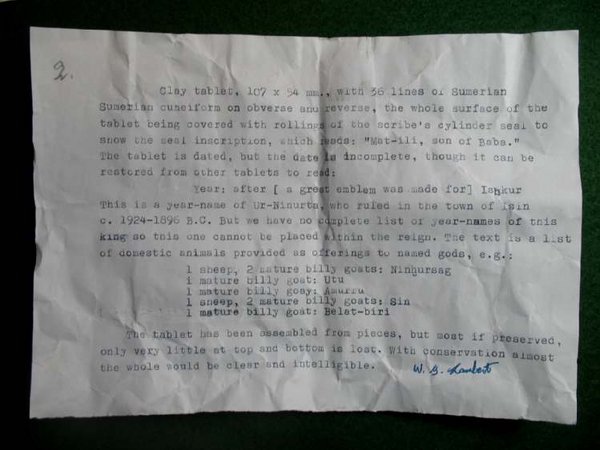 2.
Clay tablet, 107 x 54 mm., with 36 lines of Sumerian
Sumerian cuneiform on obverse and reverse, the whole surface of the
tablet being covered with rollings of the scribe's cylinder seal to
show the seal inscription, which reads: "Mat-ili, son of Baba."
The tablet is dated, but the date is incomplete, though it can be
restored from other tablets to read:
Year: after [ a great emblem was made for] Ishkur
This is a year-name of Ur-Ninurta, who ruled in the town of Isin
c. 1924-1896 B.C. But we have no complete list of year-names of this
king so this one cannot be placed within the reign. The text is a list
of domestic animals provided as offerings to named gods, e.g.:
1 sheep, 2 mature billy goats: Ninhursag
1 mature billy goat: Utu
1 mature billy goay: Amurru
1 sheep, 2 mature billy goats: Sin
1 mature billy goat: Belat-biri
The tablet has been assembled from pieces, but most if preserved,
only very little at top and bottom is lost. With conservation almost
the whole would be clear and intelligible.
W. G. Lambert